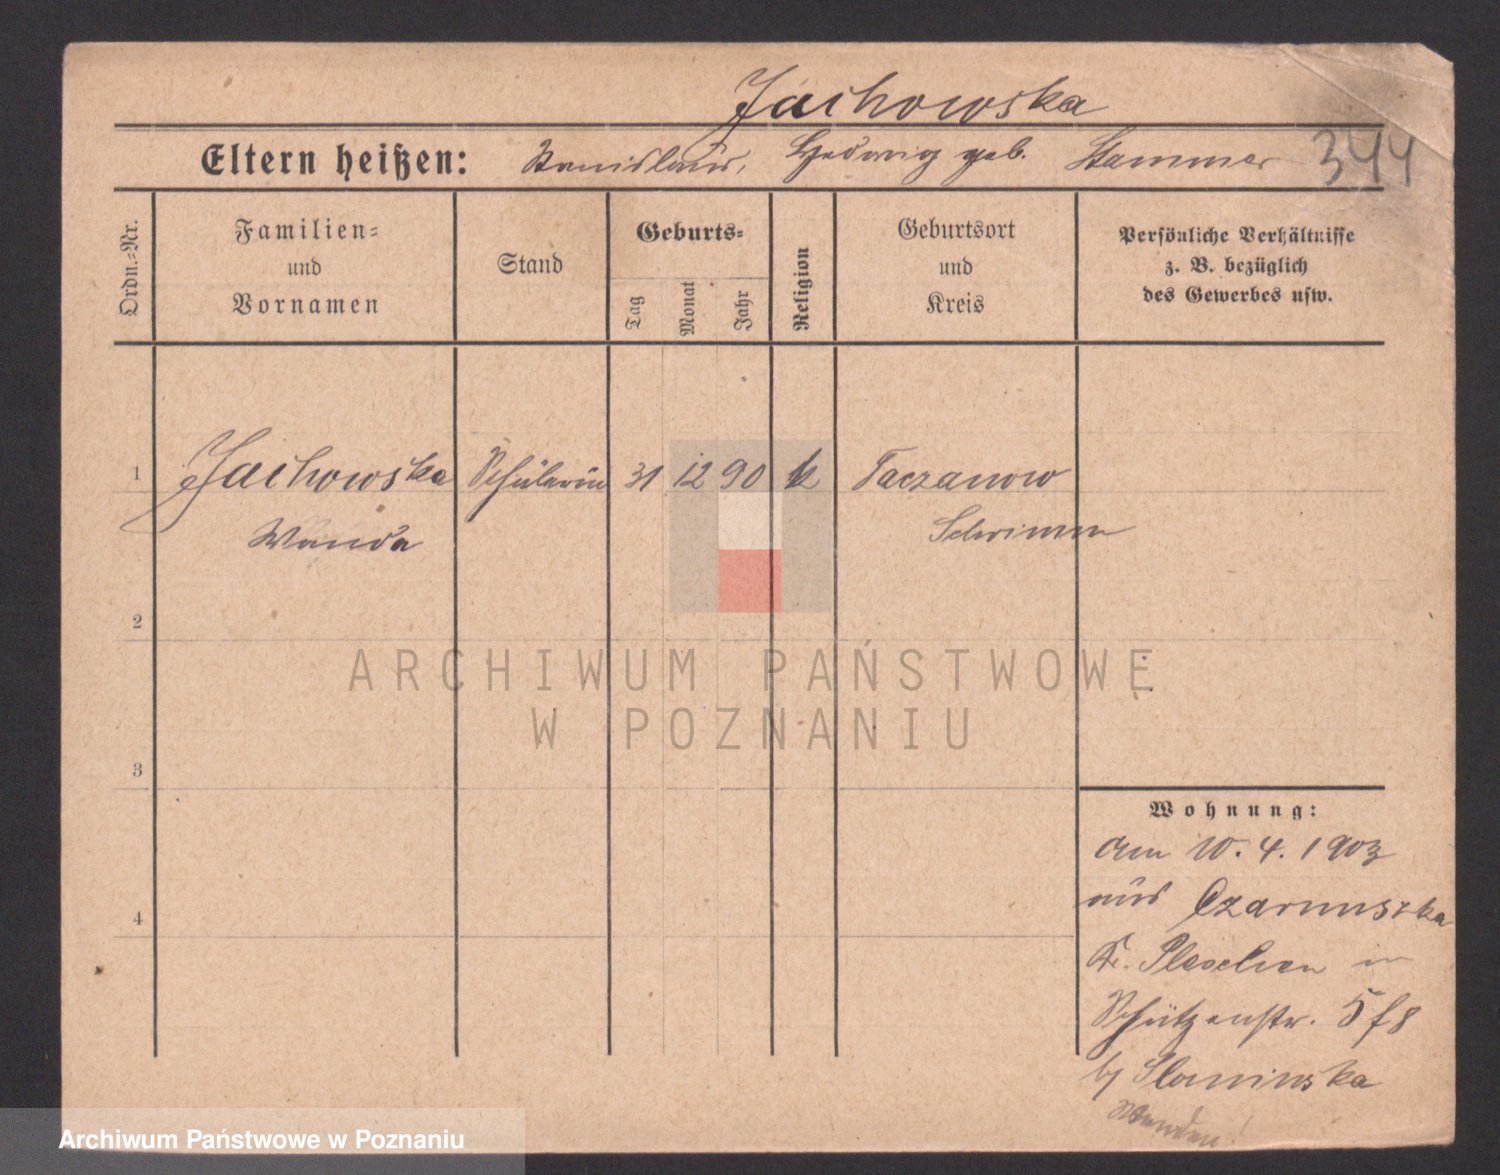 Jachowska
Eltern heißen: Stanislaus, Hedwig geb. Stammer 344
Ordn.-Nr.
Familien- und Vornamen
Stand
Geburts-
Tag
Monat
Jahr
Religion
Geburtsort und Kreis
Persönliche Verhältnisse
z. B. bezüglich
des Gewerbes usw.
1 Jachowska Schülerin 31 12 90 k Taczanow
Wanda Schrimm
2
ARCHIWUM PAŃSTWOWE
W POZNANIU
3
Wohnung:
Am 10. 4. 1903
aus Czarnuszka
4
Kr. Pleschen in
Schützenstr. 5 f8
by Slominska
Wenden!
Archiwum Państwowe w Poznaniu